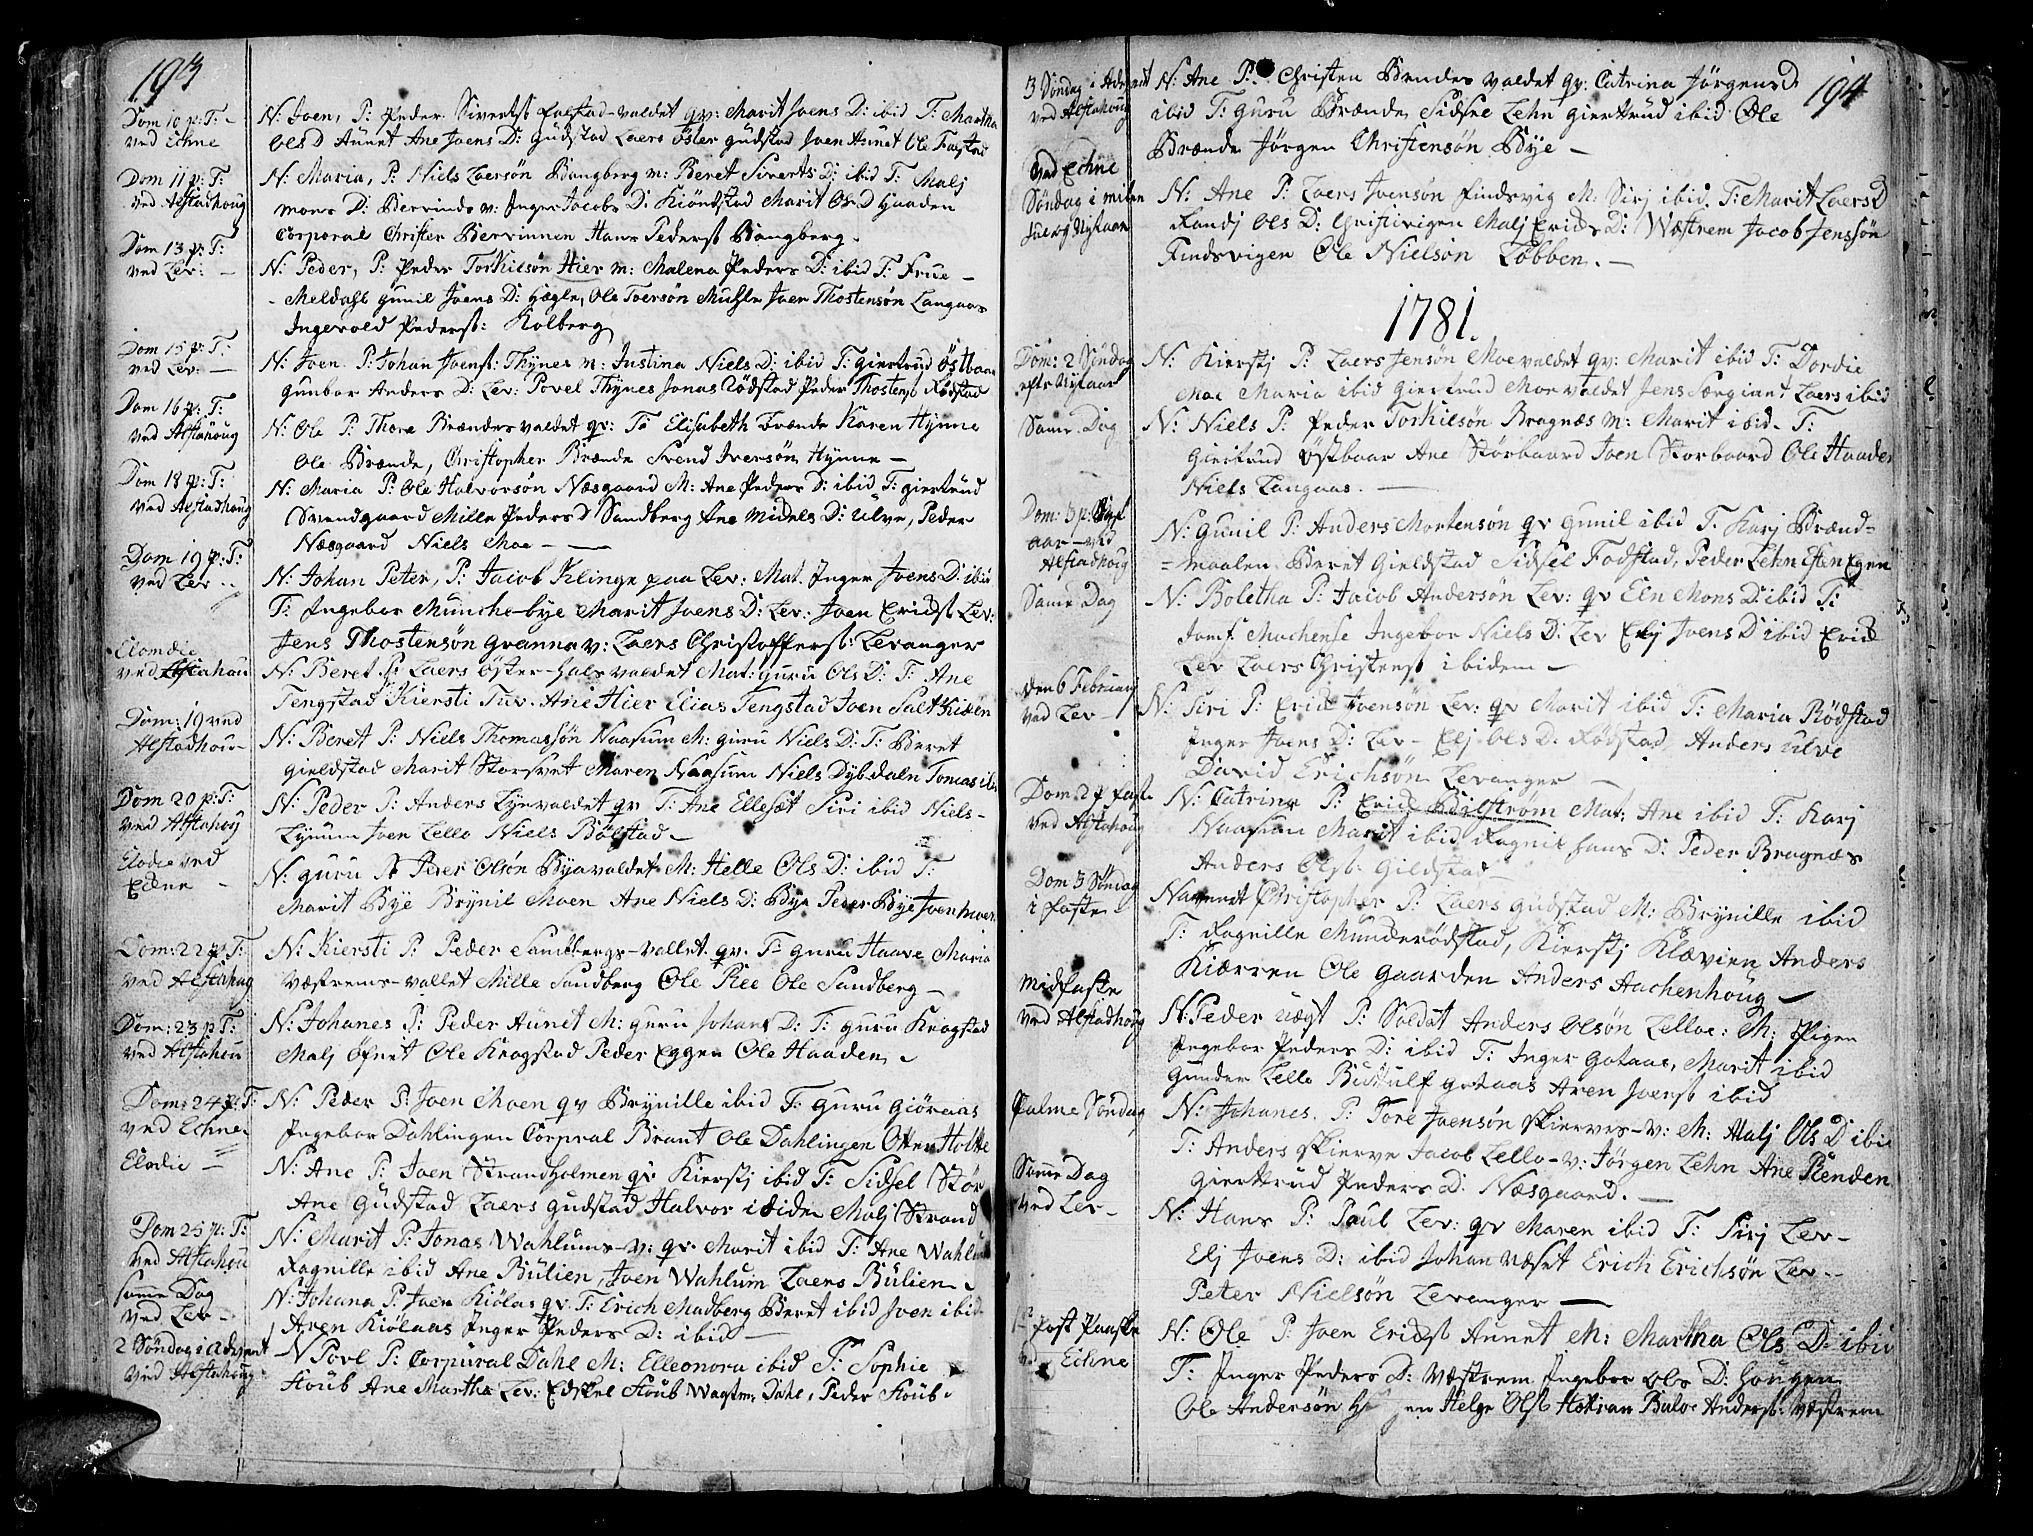 193
Dom 10 p: T:
ved Echne
N: Joen, P: Peder Sivertst Falstad-valdet qv: Marit Joens D: ibid T: Martha
Ols D Aunet Ane Joens D: Gudstad Laers Öster gudstad Joen Aunet Ole Fagstad
Dom 11 p: T:
ved Alstadhoug
N: Maria, P: Niels Laersön Bangberg m: Beret Siverts D: ibid T: Malj
Mons D: Berrinds v: Inger Jacobs D: Kiöndstad Marit Ols D Haaden
Corporal Christen Berrinnen Hans Pederst Bangberg.
Dom 13 p: T:
ved Lev: —
N: Peder, P: Peder Torkilsön Hier m: Malena Peders D: ibid T: Frue —
Meldahl Gunil Joens D: Hegle, Ole Toersön Muhle Joen Thostensön Langaas
Ingevold Pederst: Kolberg
Dom 15 p: T:
ved Lev: —
N: Joen P: Johan Joenst: Thynes m: Justina Niels D: ibid T: giertrud Östbaar
Gunbor Anders D: Lev: Povel Thynes Jonas Rödstad Peder Thostenst Rödstad
Dom 16 p: T:
ved Alstahoug
N: Ole P: Thore Brændesvaldet qv: T: Elisabeth Brænde Karen Hynne
Ole Brænde, Christopher Brænde Svend Iversön Hynne —
Dom 18 p: T:
ved Alstadhoug
N: Maria P: Ole Halvorsön Næsgaard M: Ane Peders D: ibid T: giertrud
Svendgaard Mille Peders D Sandberg Ane Michels D: Ulve, Peder
Næsgaard Niels Moe —
Dom 19 p: T:
ved Lev
N: Johan Peter, P: Jacob Klinge paa Lev: Mat. Inger Joens D: ibid
T: Ingebor Munche-bye Marit Joens D: Lev: Joen Ericst Lev:
Jens Thostensön Granna v: Laers Christofferst: Levanger
Elomdie
ved Alstahou
N: Beret P: Laers Öster-Hals valdet Mat: Guru Ols D: T: Ane
Tengstad Kiersti Tuv. Ane Hier Elias Tengstad Joen Salthiælen
Dom: 19 ved
Alstadhou
N: Beret P: Niels Thomassön Naasum M: guru Niels D: T: Beret
Gieldstad Marit Storsvet Maren Naasum Niels Dybdaln Tomas ibi
Dom 20 p: T:
ved Alstahoug
N: Peder P: Anders Lynvaldet qv T: Ane Ellesæt Siri ibid Niels-
Lynum Joen Lello Niels Bölstad —
Elodie ved
Echne —
N: guru P: Peder Olsön Byavaldet M: Helle Ols D: ibid T:
Marit Bye Brynil Moen Ane Niels D: Bye Peder Bye Joen Moen
Dom: 22 p: T:
ved Alstahoug
N: Kiersti P: Peder Sandbergs-vallet qv. T: guru Haave Maria
Væstrems-vallet Mille Sandberg Ole Ree Ole Sandberg —
Dom: 23 p: T:
ved Alstahou
N: Johanes P: Peder Aunet M: guru Johans D: T: guru Kragstad
Malj Öfnet Ole Kragstad Peder Eggen Ole Haaden
Dom: 24 p: T:
ved Echne
N: Peder P: Joen Moen qv Brynille ibid T: guru giöraas
Ingebor Dahlingen Corpral Brant Ole Dahlingen Otter Holte
Elodie —
N: Ane P: Joen Strandholmen qv Kierstj ibid T: Sidsel Stör
Ane Gudstad Laers gudstad Halvor ibiden Malj Strand
Dom 25 p: T:
ved Alstahou
N: Marit P: Jonas Wahlums-v: qv Marit ibid T: Ane Wahlum
Ragnille ibid Ane Bulien, Joen Wahlum Laers Bulien
same Dag
ved Lev —
N: Johana P: Joen Kiölas qv. T: Erich Madberg Beret ibid Joen ibid
Aren Kiölaas Inger Peders D: ibid —
2 Söndag i Advent
ved Alstahoug
N Povl P: Corpural Dahl M: Elleonora ibid T: Sophie
Stoub Ane Martha Lev: Edskel Stoub Wagtm: Dahl, Peder Stoub
194
3 Söndag i Advent
ved Alstahoug
N: Ane P: Christen Brendes valdet qv: Catrina Jörgens D
ibid T: Guru Brænde Sidsee Lehn Giertrud ibid Ole
Brænde Jörgen Christensön Bye —
ved Echne
Söndag i milen
Juel og Nyeaar
N: Ane P: Laers Joensön Findsvig M: Sirj ibid. T: Marit Laers D
Randj Ols D: Gristivigen Malj Erics D: Wæstrem Jacob Jenssön
Findsvigen Ole Nielsön Lobben. —
1781.
Dom: 2 Söndag
efter Nytaar
N: Kierstj P: Laers Jensön Moevaldet qv: Marit ibid T: Dordie
Moe Maria ibid giertrud Moevaldet Jens Sergiant Laers ibid
Same Dag
N: Niels P: Peder Torkilsön Bragnæs m: Marit ibid. T:
Giertrud Östbaar Ane Störbaard Joen Storbaard Ole Haaden
Niels Langaas. —
Dom: 3 p: Nyt
aar — ved
Alstadhoug
N: Gunil P: Anders Mortensön qv Gunil ibid T. Karj Brænd=
=maalen Beret Gieldstad Sidsel Fodstad, Peder Lehn Sten Egen
Same Dag
N: Boletha P: Jacob Andersön Lev: qv Eln Mons D ibid T:
Jomf. Machense Ingebor Niels D: Lev Elj Joens D ibid Eric
Lev Laers Christenst ibidem —
den 6 Februarj
ved Lev —
N: Siri P: Eric Joensön Lev: qv Marit ibid T: Maria Rödstad
Inger Joens D: Lev — Elj Ols D. Rödstad Anders Ulve
David Erichsön Levanger —
Dom: 2 p Faste
ved Alstahoug
N: Catrina P: Eric Bilström Mat: Ane ibid T: Karj
Naasum Marit ibid Ragnil Hans D: Peder Bragnæs
Anders Olst: Gildstad
Dom 3 Söndag
i Faste
Navnet Christopher P: Laers Gudstad M: Brynille ibid
T: Ragnille Munderödstad, Kierstj Klævien Anders
Kiærren Ole Gaarden Anders Aachenhoug —
Midfaste
ved Alstadhoug
N: Peder uægt P: Soldat Anders Olsön Lelloe: M: Pigen
Ingebor Peders D: ibid T: Inger Gotaas, Marit ibid
Gunder Lello Buttulf gotaas Aren Joenst ibid
Palme Söndag
N: Johanes. P: Tore Joensön Skierves-v: M: Malj Ols D ibid
T: Anders Skierve Jacob Lello-v: Jörgen Lehn Ane Renden
Gierttrud Peders D: Næsgaard. —
Same Dag
ved Lev —
N: Hans P: Paul Lev: qv Maren ibid T: Sirj Lev —
Elj Joens D: ibid Johan Væset Erich Erichsön Lev —
Peter Nielsön Levanger —
1 post Paaske
ved Echne
N: Ole P: Joen Ericst Aunet M: Martha Ols D: ibid
T: Inger Peders D: Væstrem Ingebor Ols D: Hougen
Ole Andersön Helge Olst Hokran Buloe Anderst: Væstrem